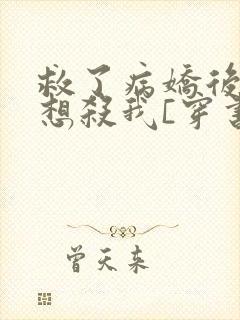 救了病嬌後
想殺我[穿書
曾天來